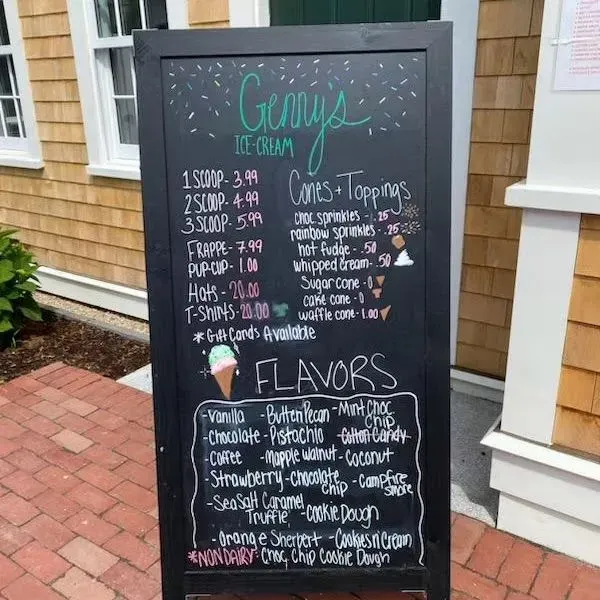 Genny's
ICE-CREAM
1 SCOOP - 3.99
2 SCOOP - 4.99
3 SCOOP - 5.99
FRAPPE - 7.99
PUP-CUP - 1.00
Hats - 20.00
T-SHIRTS - 20.00
*Gift Cards Available
Cones + Toppings
choc sprinkles - .25
rainbow sprinkles - .25
hot fudge - .50
whipped cream - .50
Sugar cone - 0
cake cone - 0
waffle cone - 1.00
FLAVORS
-Vanilla -Butter Pecan -Mint Choc Chip
-chocolate -Pistachio -Cotton Candy
COFFEE -Mapple walnut -Coconut
-Strawberry -chocolate chip -Campfire smore
-Sea Salt Caramel Truffle -Cookie Dough
-Orange Sherbert -Cookies n Cream
*NON DAIRY: Choc Chip Cookie Dough